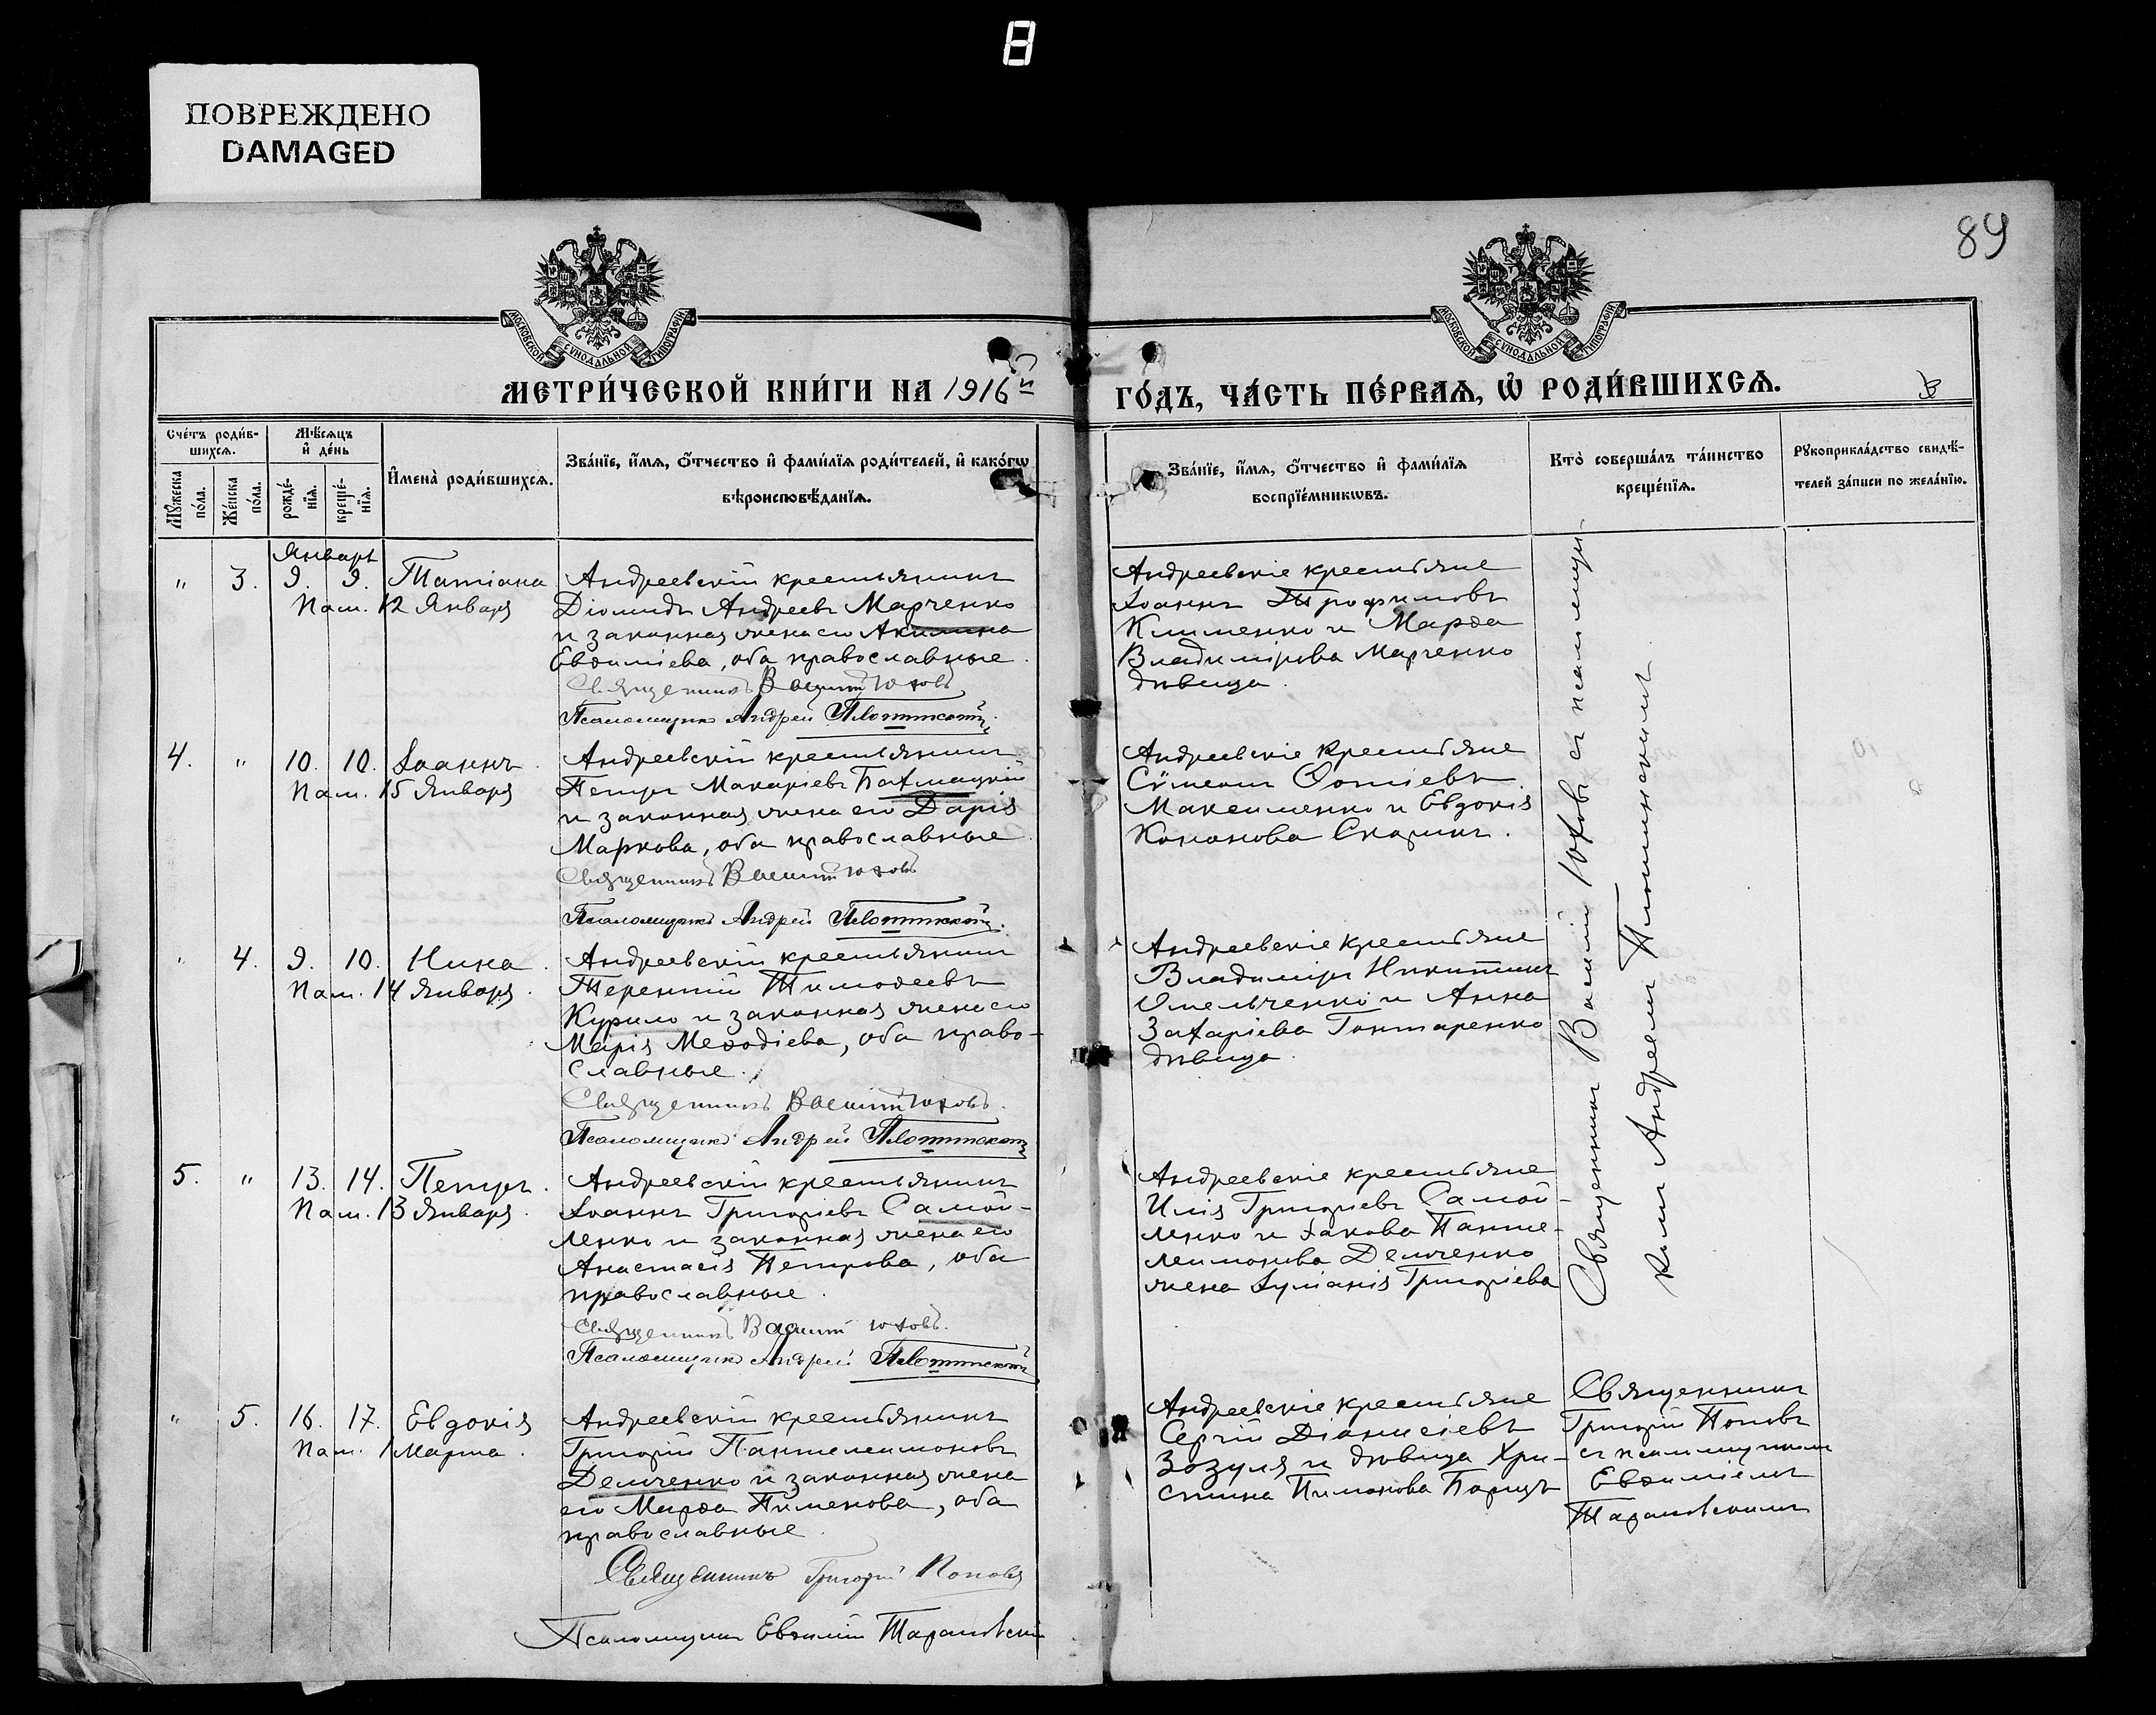 8
ПОВРЕЖДЕНО
DAMAGED
89
МОСКОВСКОЙ СѴНОДАЛЬНОЙ ТИПОГРАФІИ
МОСКОВСКОЙ СѴНОДАЛЬНОЙ ТИПОГРАФІИ
МЕТРИ́ЧЕСКОЙ КНИ́ГИ НА 1916й
ГО́ДЪ, ЧА́СТЬ ПЕ́РВАѦ, Ѡ҆ РОДИ́ВШИХСѦ.
Сче́тъ роди́в-
шихсѧ.
Мѣ́сѧцъ
и҆ де́нь
Мꙋ́жеска
по́ла.
Же́нска
по́ла.
рожде́-
нїѧ.
креще́-
нїѧ.
И҆мена̀ роди́вшихсѧ.
Зва́нїе, и҆́мѧ, ѻ҆́тчество и҆ фами́лїѧ роди́телей, и҆ како́гѡ
вѣроисповѣ́данїѧ.
Зва́нїе, и҆́мѧ, ѻ҆́тчество и҆ фами́лїѧ
воспрїе́мникѡвъ.
Кто̀ соверша́лъ та́инство
креще́нїѧ.
Рꙋкоприкла́дство свидѣ́-
телей за́писи по жела́нїю.
Январь
" 3. 9. 9. Татіана
Пам. 12 Января
Андреевскій крестьянинъ
Діомидъ Андреевъ Марченко
и законная жена его Акилина
Евѳиміева, оба православные
Священникъ Василій Юховъ
Псаломщикъ Андрей Плотинскій.
Андреевскіе крестьяне
Іоаннъ Трофимовъ
Клименко и Марѳа
Владимірова Марченко
дѣвица.
4. " 10. 10. Іоаннъ.
Пам. 15 Января
Андреевскій крестьянинъ
Петръ Макаріевъ Бахмацкій
и законная жена его Дарія
Маркова, оба православные.
Священникъ Василій Юховъ
Псаломщикъ Андрей Плотинскій.
Андреевскіе крестьяне
Сѵмеонъ Фотіевъ
Максименко и Евдокія
Кононова Скорикъ.
" 4. 9. 10. Нина.
Пам. 14 Января.
Андреевскій крестьянинъ
Терентій Тимоѳеевъ
Курило и законная жена его
Марія Меѳодіева, оба право-
славные.
Священникъ Василій Юховъ.
Псаломщикъ Андрей Плотинскій
Андреевскіе крестьяне
Владиміръ Никитинъ
Омельченко и Анна
Захаріева Гонтаренко
дѣвица.
5. " 13. 14. Петръ.
Пам. 13 Января.
Андреевскій крестьянинъ
Іоаннъ Григоріевъ Самой-
ленко и законная жена его
Анастасія Петрова, оба
православные.
Священникъ Василій Юховъ.
Псаломщикъ Андрей Плотинскій
Андреевскіе крестьяне
Илія Григоріевъ Самой-
ленко и Іакова Панте-
леимонова Демченко
жена Іуліанія Григоріева
Священникъ Василій Юховъ съ псаломщи-
комъ Андреемъ Плотинскимъ
" 5. 16. 17. Евдокія
Пам. 1 Марта.
Андреевскій крестьянинъ
Григорій Пантелеимоновъ
Демченко и законная жена
его Марѳа Пименова, оба
православные.
Священникъ Григорій Поповъ
Псаломщикъ Евѳимій Тарановскій
Андреевскіе крестьяне
Сергій Діонисіевъ
Зозуля и дѣвица Хри-
стина
Священникъ
Григорій Поповъ
съ псаломщикомъ
Евѳиміемъ
Тарановскимъ